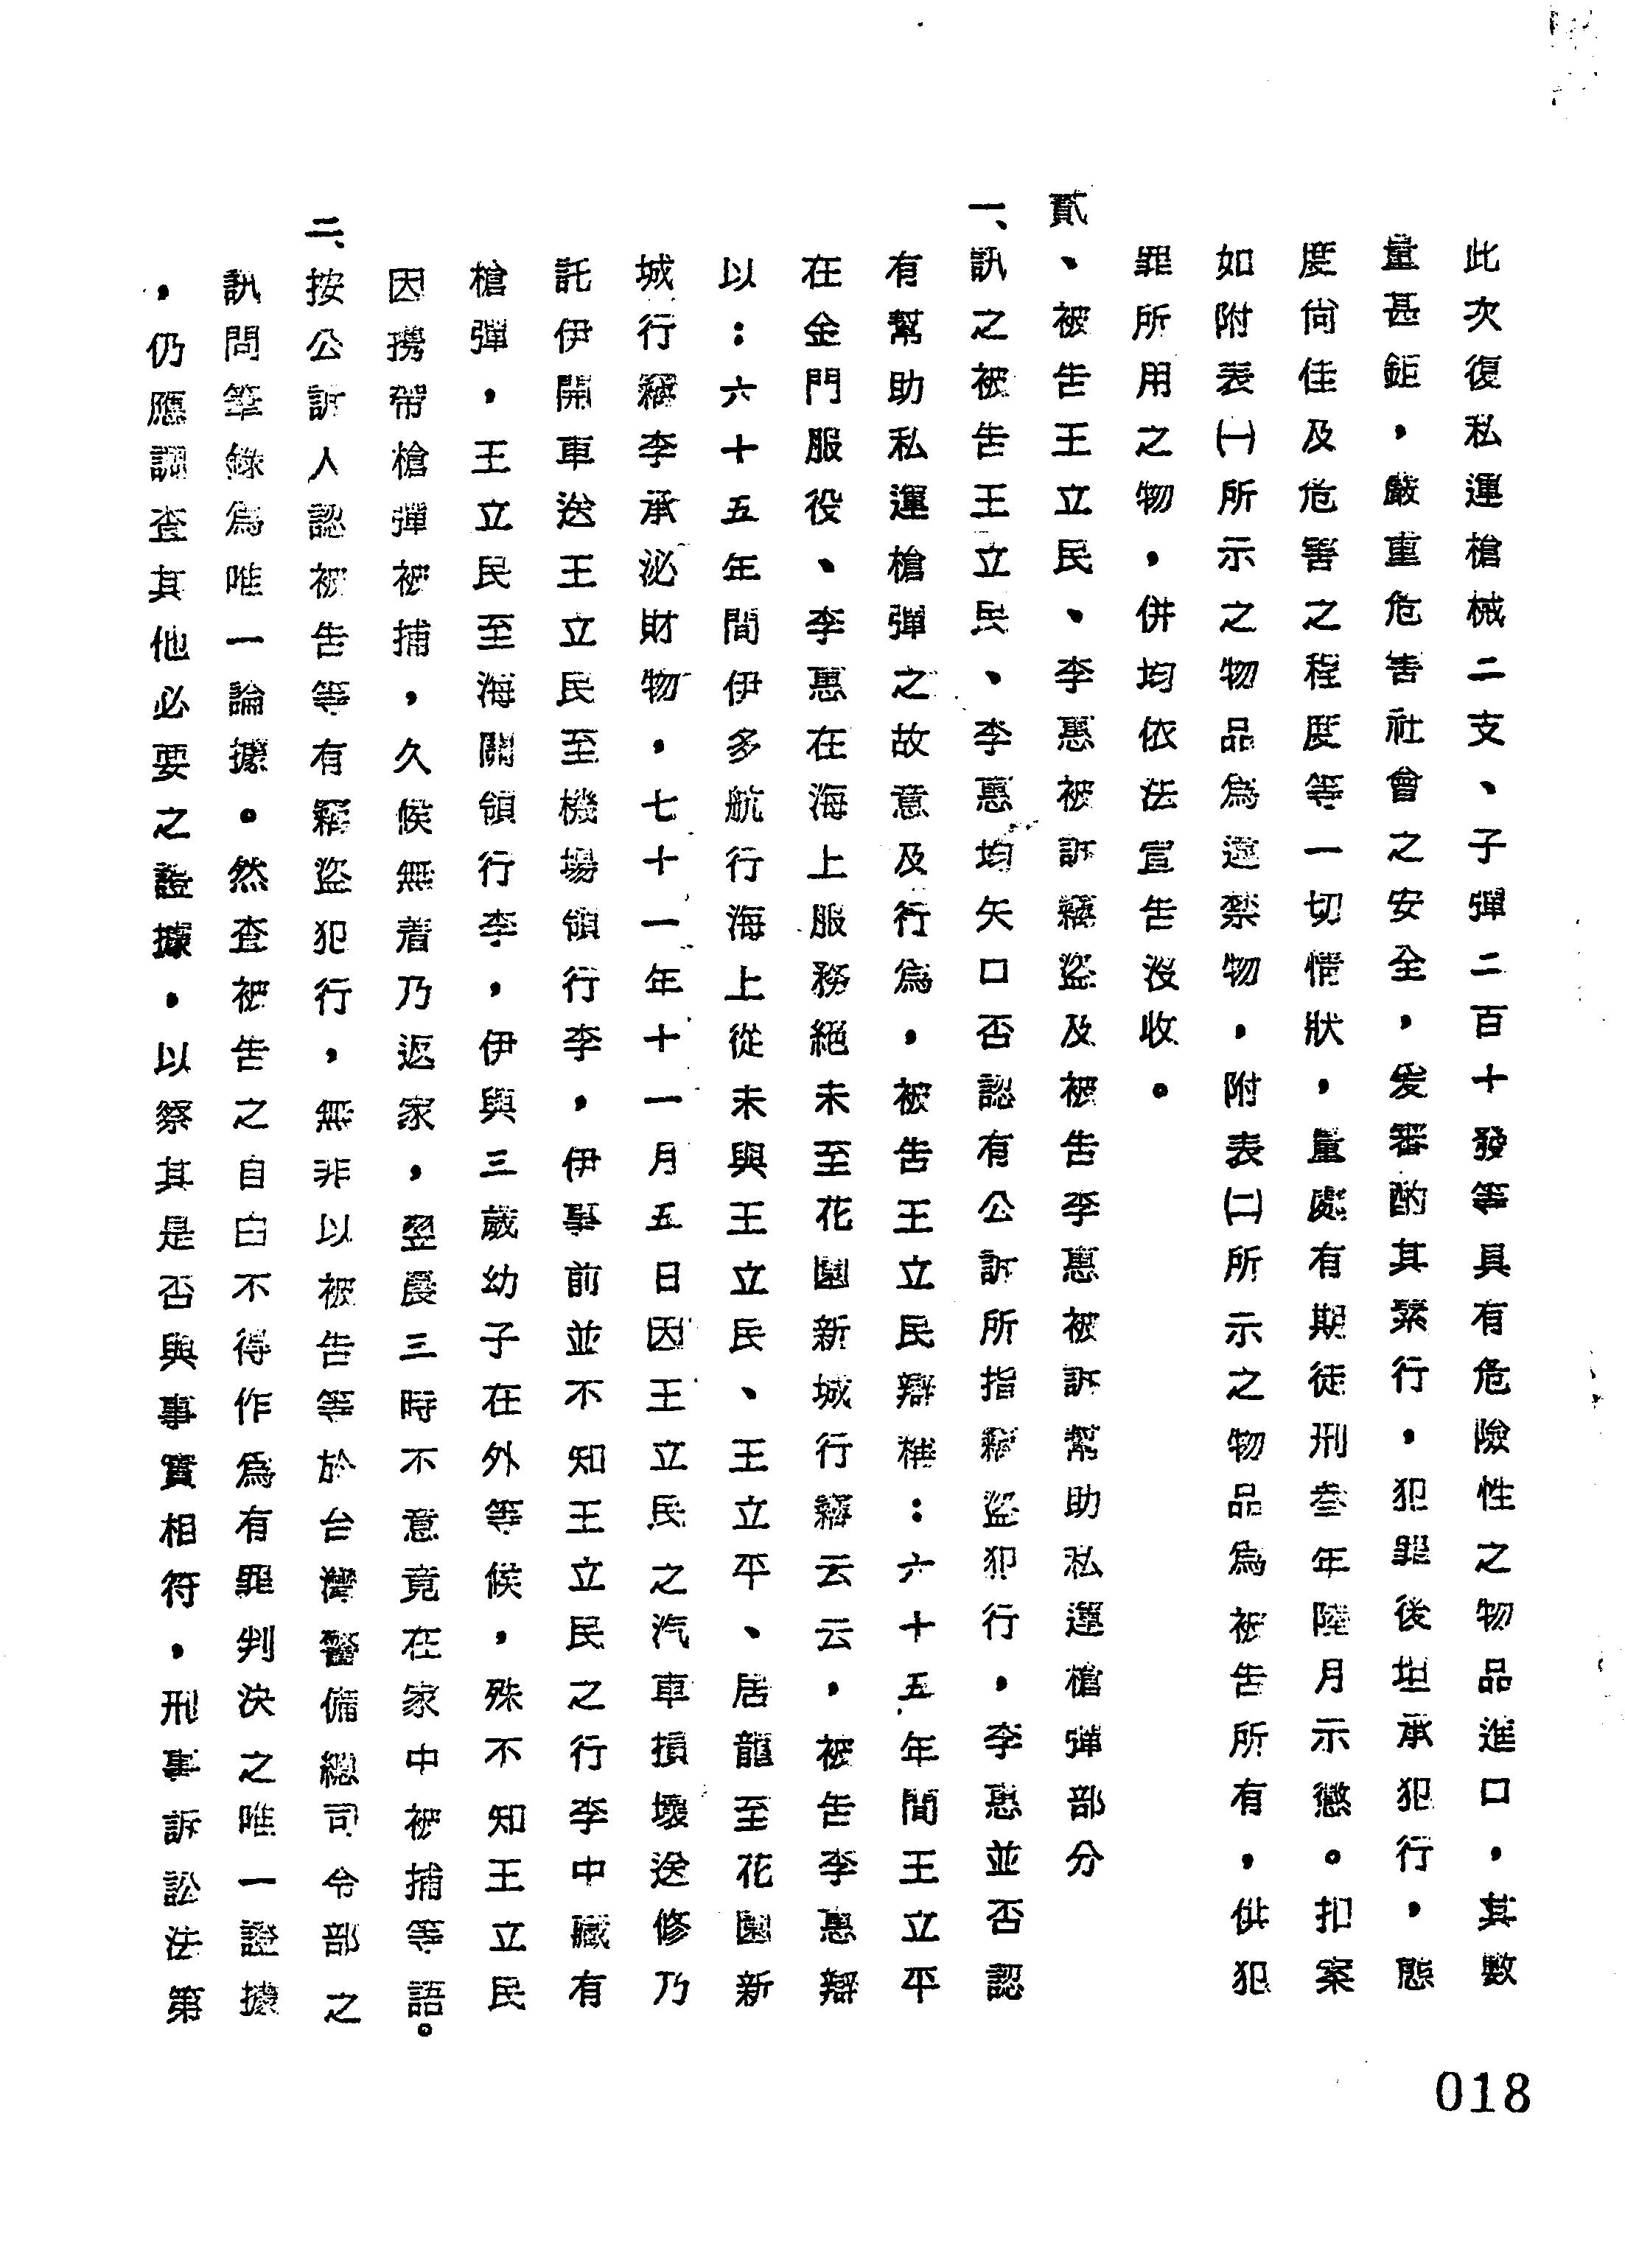 此次復私運槍械二支、子彈二百十發等具有危險性之物品進口，其數
量甚鉅，嚴重危害社會之安全，爰審酌其素行，犯罪後坦承犯行，態
度尚佳及危害之程度等一切情狀，量處有期徒刑叁年陸月示懲。扣案
如附表㈠所示之物品為違禁物，附表㈡所示之物品為被告所有，供犯
罪所用之物，併均依法宣告沒收。
貳、被告王立民、李惠被訴竊盜及被告李惠被訴幫助私運槍彈部分
一、訊之被告王立民、李惠均矢口否認有公訴所指竊盜犯行，李惠並否認
有幫助私運槍彈之故意及行為，被告王立民辯稱：六十五年間王立平
在金門服役、李惠在海上服務絕未至花園新城行竊云云，被告李惠辯
以：六十五年間伊多航行海上從未與王立民、王立平、居龍至花園新
城行竊李承泌財物，七十一年十一月五日因王立民之汽車損壞送修乃
託伊開車送王立民至機場領行李，伊事前並不知王立民之行李中藏有
槍彈，王立民至海關領行李，伊與三歲幼子在外等候，殊不知王立民
因携帶槍彈被捕，久候無着乃返家，翌晨三時不意竟在家中被捕等語。
二、按公訴人認被告等有竊盜犯行，無非以被告等於台灣警備總司令部之
訊問筆錄為唯一論據。然查被告之自白不得作為有罪判決之唯一證據
，仍應調查其他必要之證據，以察其是否與事實相符，刑事訴訟法第
018